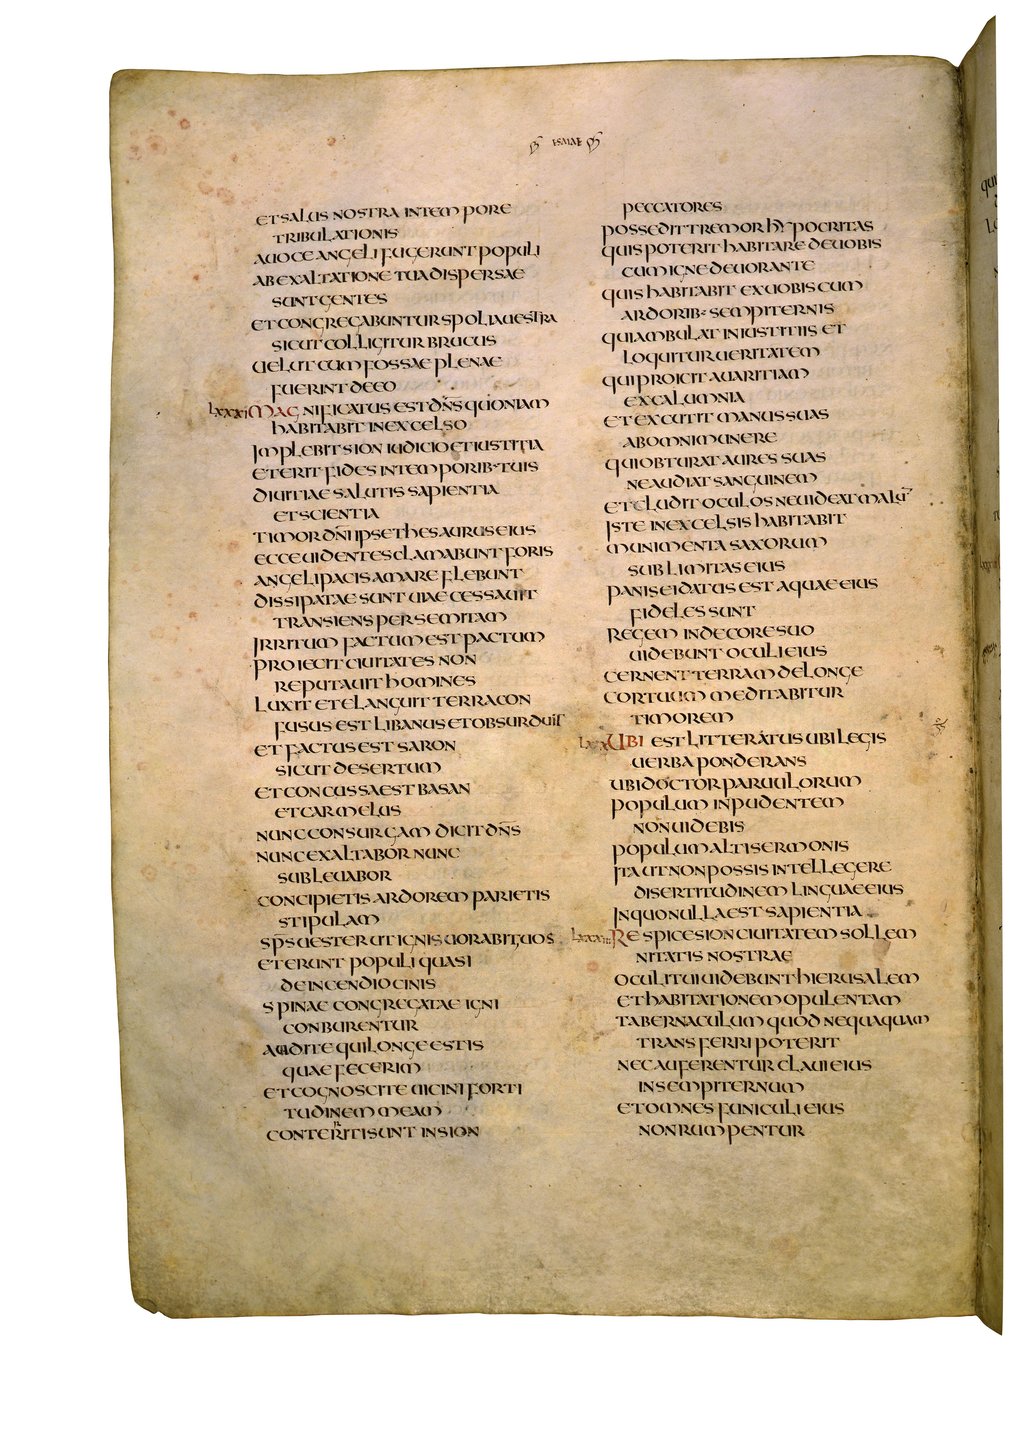 ESAIAE
ET SALUS NOSTRA IN TEMPORE
TRIBULATIONIS
A UOCE ANGELI FUGERUNT POPULI
AB EXALTATIONE TUA DISPERSAE
SUNT GENTES
ET CONGREGABUNTUR SPOLIA UESTRA
SICUT COLLIGITUR BRUCUS
UELUT CUM FOSSAE PLENAE
FUERINT DE EO
LXXXI MAGNIFICATUS EST DN̄S QUONIAM
HABITABIT IN EXCELSO
IMPLEBIT SION IUDICIO ET IUSTITIA
ET ERIT FIDES IN TEMPORIB· TUIS
DIUITIAE SALUTIS SAPIENTIA
ET SCIENTIA
TIMOR DN̄I IPSE THESAURUS EIUS
ECCE UIDENTES CLAMABUNT FORIS
ANGELI PACIS AMARE FLEBUNT
DISSIPATAE SUNT UIAE CESSAUIT
TRANSIENS PER SEMITAM
IRRITUM FACTUM EST PACTUM
PROIECIT CIUITATES NON
REPUTAUIT HOMINES
LUXIT ET ELANGUIT TERRA CON
FUSUS EST LIBANUS ET OBSURDUIT
ET FACTUS EST SARON
SICUT DESERTUM
ET CONCUSSA EST BASAN
ET CARMELUS
NUNC CONSURGAM DICIT DN̄S
NUNC EXALTABOR NUNC
SUBLEUABOR
CONCIPIETIS ARDOREM PARIETIS
STIPULAM
SP̄S UESTER UT IGNIS UORABIT UOS
ET ERUNT POPULI QUASI
DE INCENDIO CINIS
SPINAE CONGREGATAE IGNI
CONBURENTUR
AUDITE QUI LONGE ESTIS
QUAE FECERIM
ET COGNOSCITE UICINI FORTI
TUDINEM MEAM
CONTERRITI SUNT IN SION
PECCATORES
POSSEDIT TREMOR HYPOCRITAS
QUIS POTERIT HABITARE DE UOBIS
CUM IGNE DEUORANTE
QUIS HABITABIT EX UOBIS CUM
ARDORIB· SEMPITERNIS
QUI AMBULAT IN IUSTITIIS ET
LOQUITUR UERITATEM
QUI PROICIT AUARITIAM
EX CALUMNIA
ET EXCUTIT MANUS SUAS
AB OMNI MUNERE
QUI OBTURAT AURES SUAS
NE AUDIAT SANGUINEM
ET CLUDIT OCULOS NE UIDEAT MALŪ
ISTE IN EXCELSIS HABITABIT
MUNIMENTA SAXORUM
SUBLIMITAS EIUS
PANIS EI DATUS EST AQUAE EIUS
FIDELES SUNT
REGEM IN DECORE SUO
UIDEBUNT OCULI EIUS
CERNENT TERRAM DE LONGE
COR TUUM MEDITABITUR
TIMOREM
UBI EST LITTERATUS UBI LEGIS
UERBA PONDERANS
UBI DOCTOR PARUULORUM
POPULUM INPUDENTEM
NON UIDEBIS
POPULUM ALTI SERMONIS
ITA UT NON POSSIS INTELLEGERE
DISERTITUDINEM LINGUAE EIUS
IN QUO NULLA EST SAPIENTIA
RESPICE SION CIUITATEM SOLLEM
NITATIS NOSTRAE
OCULI TUI UIDEBUNT HIERUSALEM
ET HABITATIONEM OPULENTAM
TABERNACULUM QUOD NEQUAQUAM
TRANSFERRI POTERIT
NEC AUFERENTUR CLAUI EIUS
IN SEMPITERNUM
ET OMNES FUNICULI EIUS
NON RUMPENTUR